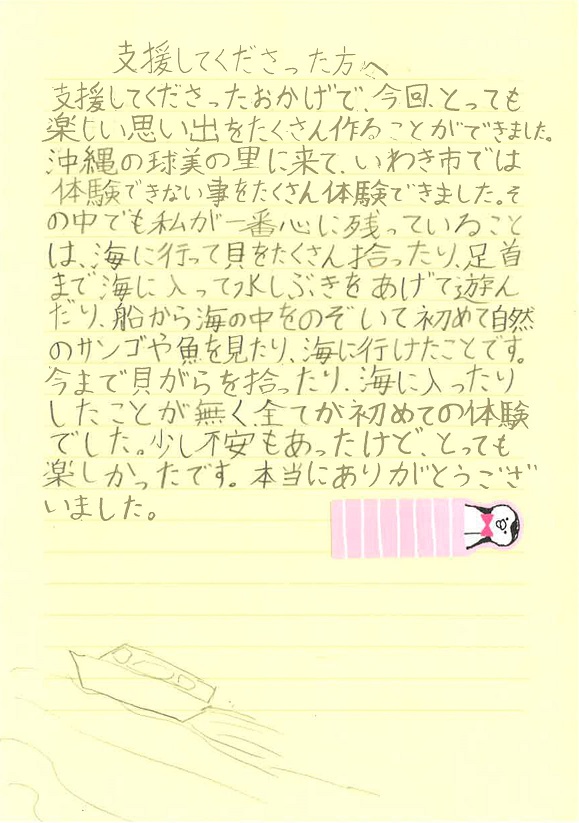 支援してくださった方へ
支援してくださったおかげで、今回、とっても
楽しい思い出をたくさん作ることができました。
沖縄の球美の里に来て、いわき市では
体験できない事をたくさん体験できました。そ
の中でも私が一番心に残っていること
は、海に行って貝をたくさん拾ったり、足首
まで海に入って水しぶきをあげて遊ん
だり、船から海の中をのぞいて初めて自然
のサンゴや魚を見たり、海に行けたことです。
今まで貝がらを拾ったり、海に入ったり
したことが無く、全てが初めての体験
でした。少し不安もあったけど、とっても
楽しかったです。本当にありがとうござ
いました。